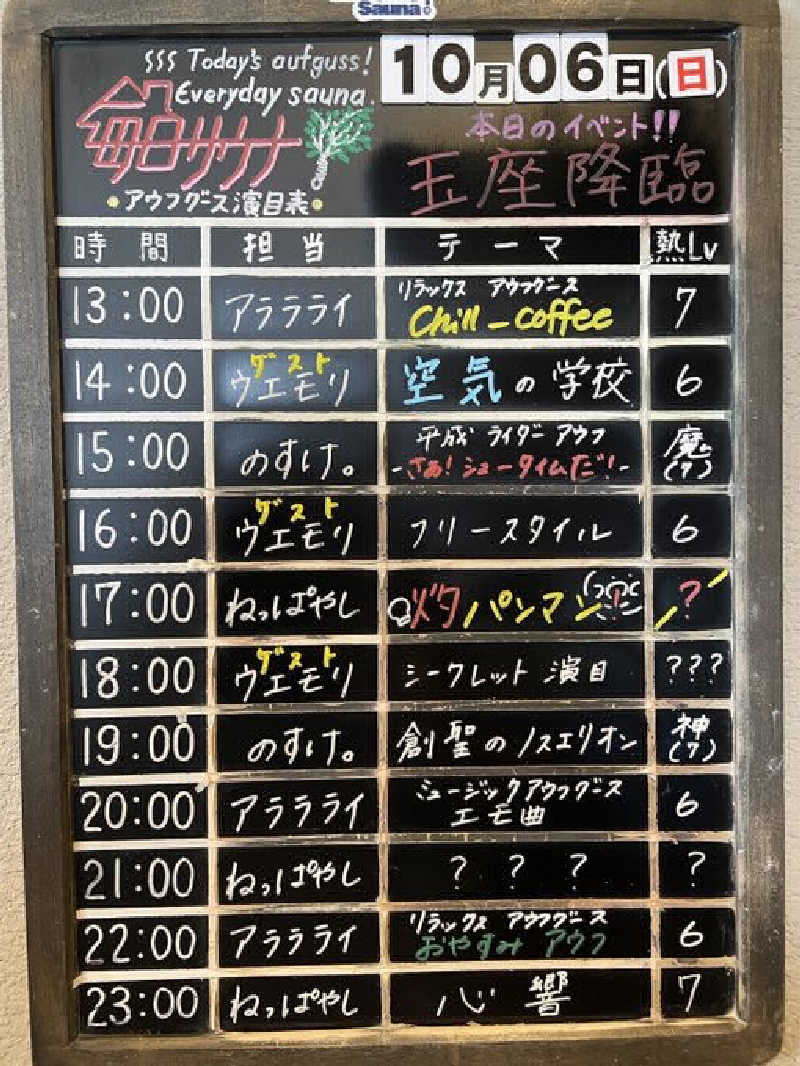 Sauna!
SSS Today's aufguss!
Everyday sauna.
毎日サウナ
アウフグース演目表
10月06日(日)
本日のイベント!!
玉座降臨
時間 担当 テーマ 熱Lv
13:00 アラララライ リラックス アウフグース Chill-coffee 7
14:00 ゲスト ウエモリ 空気の学校 6
15:00 のすけ。 平成 ライダー アウフ -さぁ!ショータイムだ!- 魔(7)
16:00 ゲスト ウエモリ フリースタイル 6
17:00 ねっぱやし 灼パンマン! ?
18:00 ゲスト ウエモリ シークレット 演目 ???
19:00 のすけ。 創聖のノスエリオン 神(7)
20:00 アララライ ミュージックアウフグース エモ曲 6
21:00 ねっぱやし ? ? ? ?
22:00 アララライ リラックス アウフグース おやすみ アウフ 6
23:00 ねっぱやし 心響 7